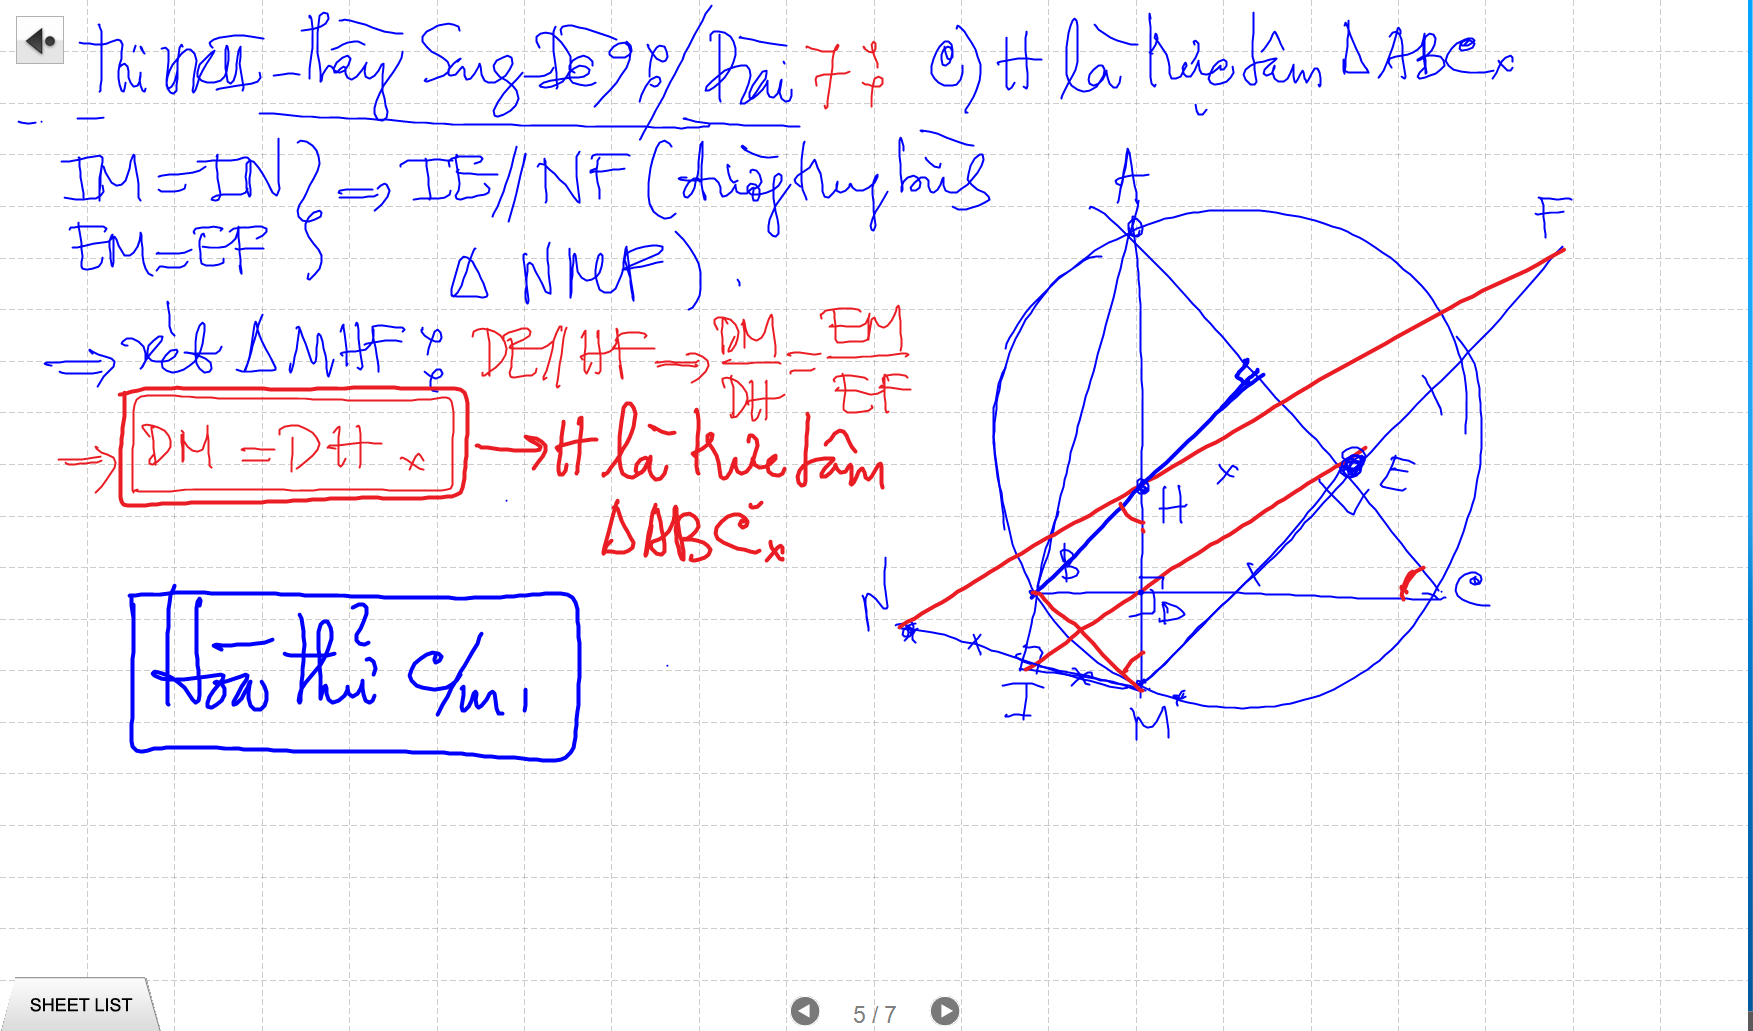 Thi viết - Thầy Sang - Đề 9 : / Bài 7 : c) H là trực tâm ΔABC
IM = IN } ⇒ IE // NF (đường trung bình
EM = EF } Δ NMF).
⇒ xét Δ MHF : DE // HF ⇒ DM/DH = EM/EF
⇒ DM = DH → H là trực tâm
ΔABC
A
F
E
H
B
N
C
D
I
M
SHEET LIST
5 / 7